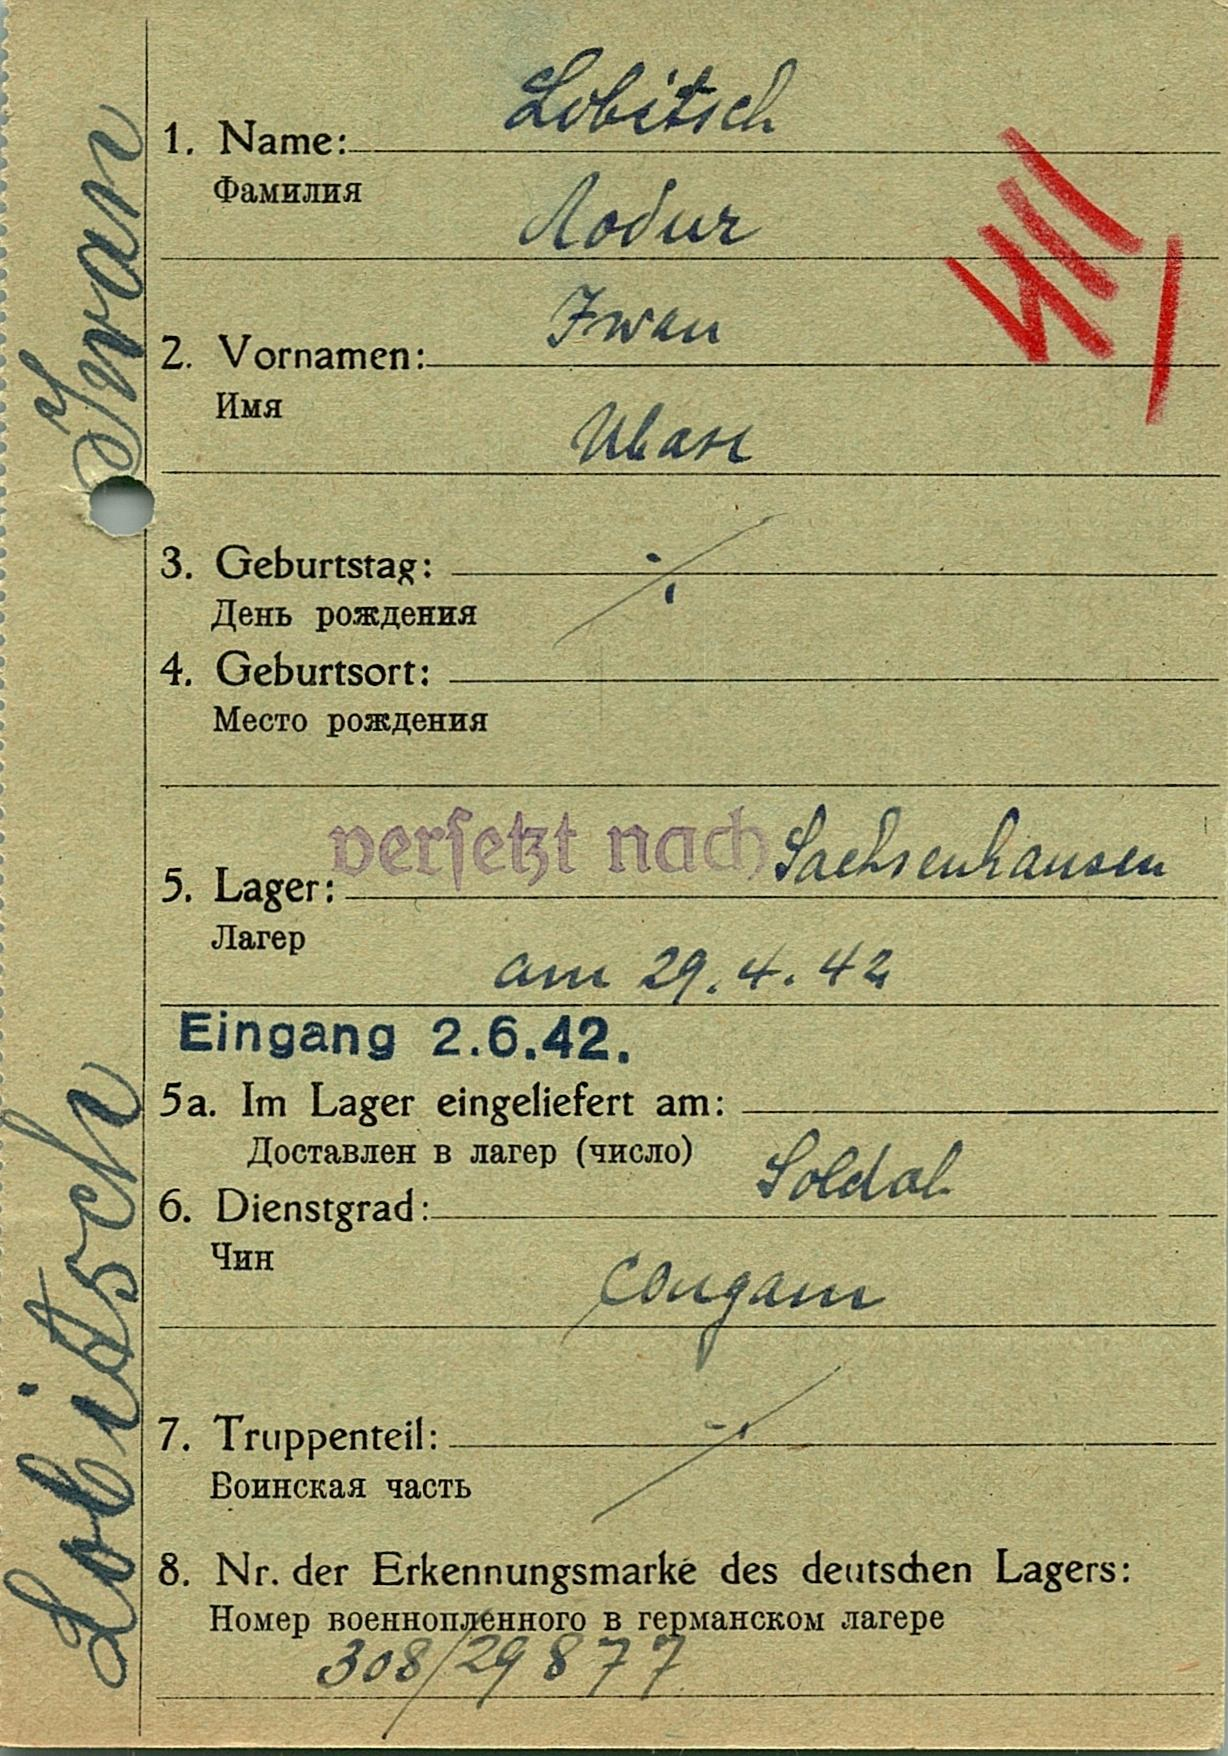 Lobitsch
1. Name:
Фамилия
Лобич
Iwan
2. Vornamen:
Имя
Иван
3. Geburtstag: ./.
День рождения
4. Geburtsort:
Место рождения
versetzt nach Sachsenhausen
5. Lager:
Лагер
am 29.4.42
Eingang 2.6.42.
5a. Im Lager eingeliefert am:
Доставлен в лагер (число)
Soldat
6. Dienstgrad:
Чин
Солдат
7. Truppenteil: ./.
Воинская часть
8. Nr. der Erkennungsmarke des deutschen Lagers:
Номер военнопленного в германском лагере
308/29877
Lobitsch Iwan